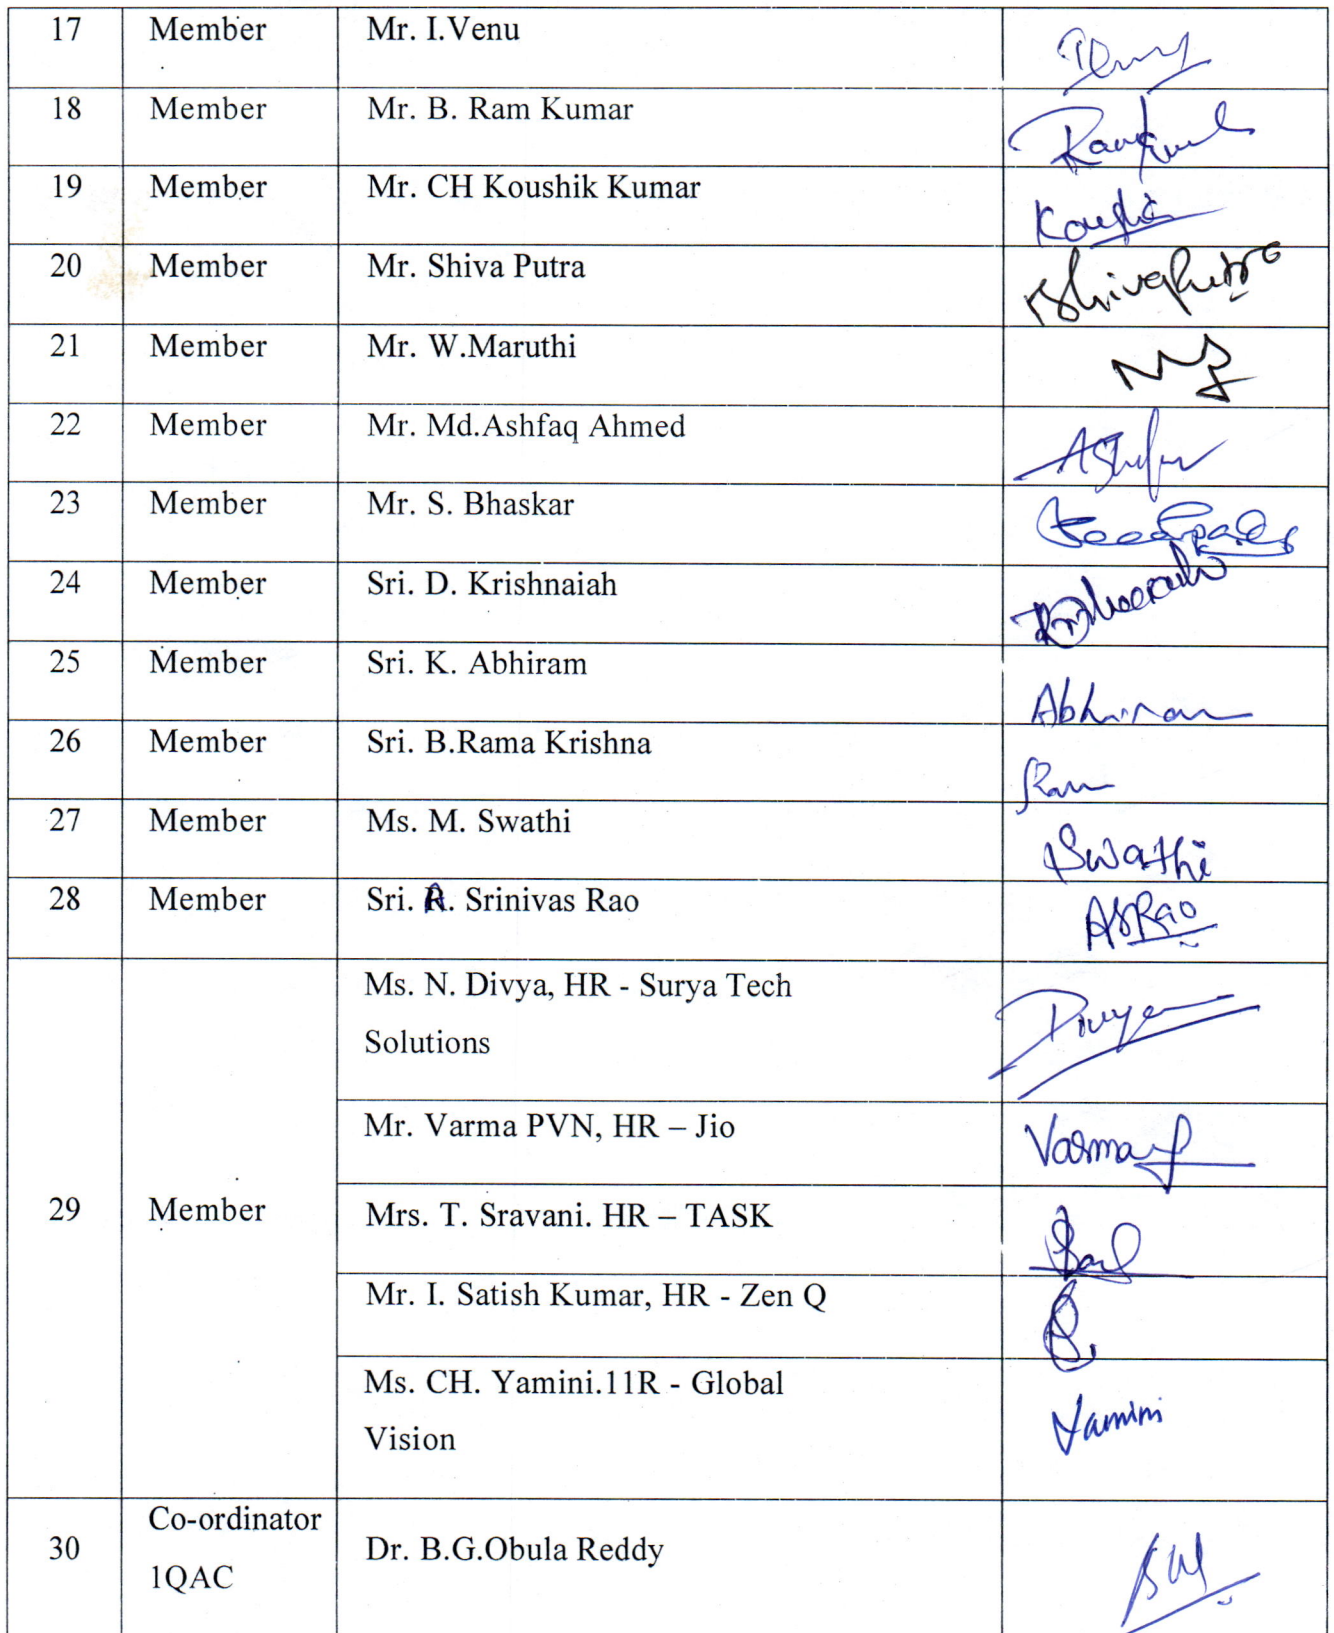 17 Member Mr. I.Venu
18 Member Mr. B. Ram Kumar
19 Member Mr. CH Koushik Kumar
Koushik
20 Member Mr. Shiva Putra
Shivaputra
21 Member Mr. W.Maruthi
22 Member Mr. Md.Ashfaq Ahmed
23 Member Mr. S. Bhaskar
24 Member Sri. D. Krishnaiah
25 Member Sri. K. Abhiram
Abhiram
26 Member Sri. B.Rama Krishna
Ram
27 Member Ms. M. Swathi
Swathi
28 Member Sri. A. Srinivas Rao
ASRao
Ms. N. Divya, HR - Surya Tech
Solutions
Divya
Mr. Varma PVN, HR – Jio
Varma
29 Member Mrs. T. Sravani. HR – TASK
Mr. I. Satish Kumar, HR - Zen Q
Ms. CH. Yamini.11R - Global
Vision
Yamini
Co-ordinator
30 Dr. B.G.Obula Reddy
1QAC